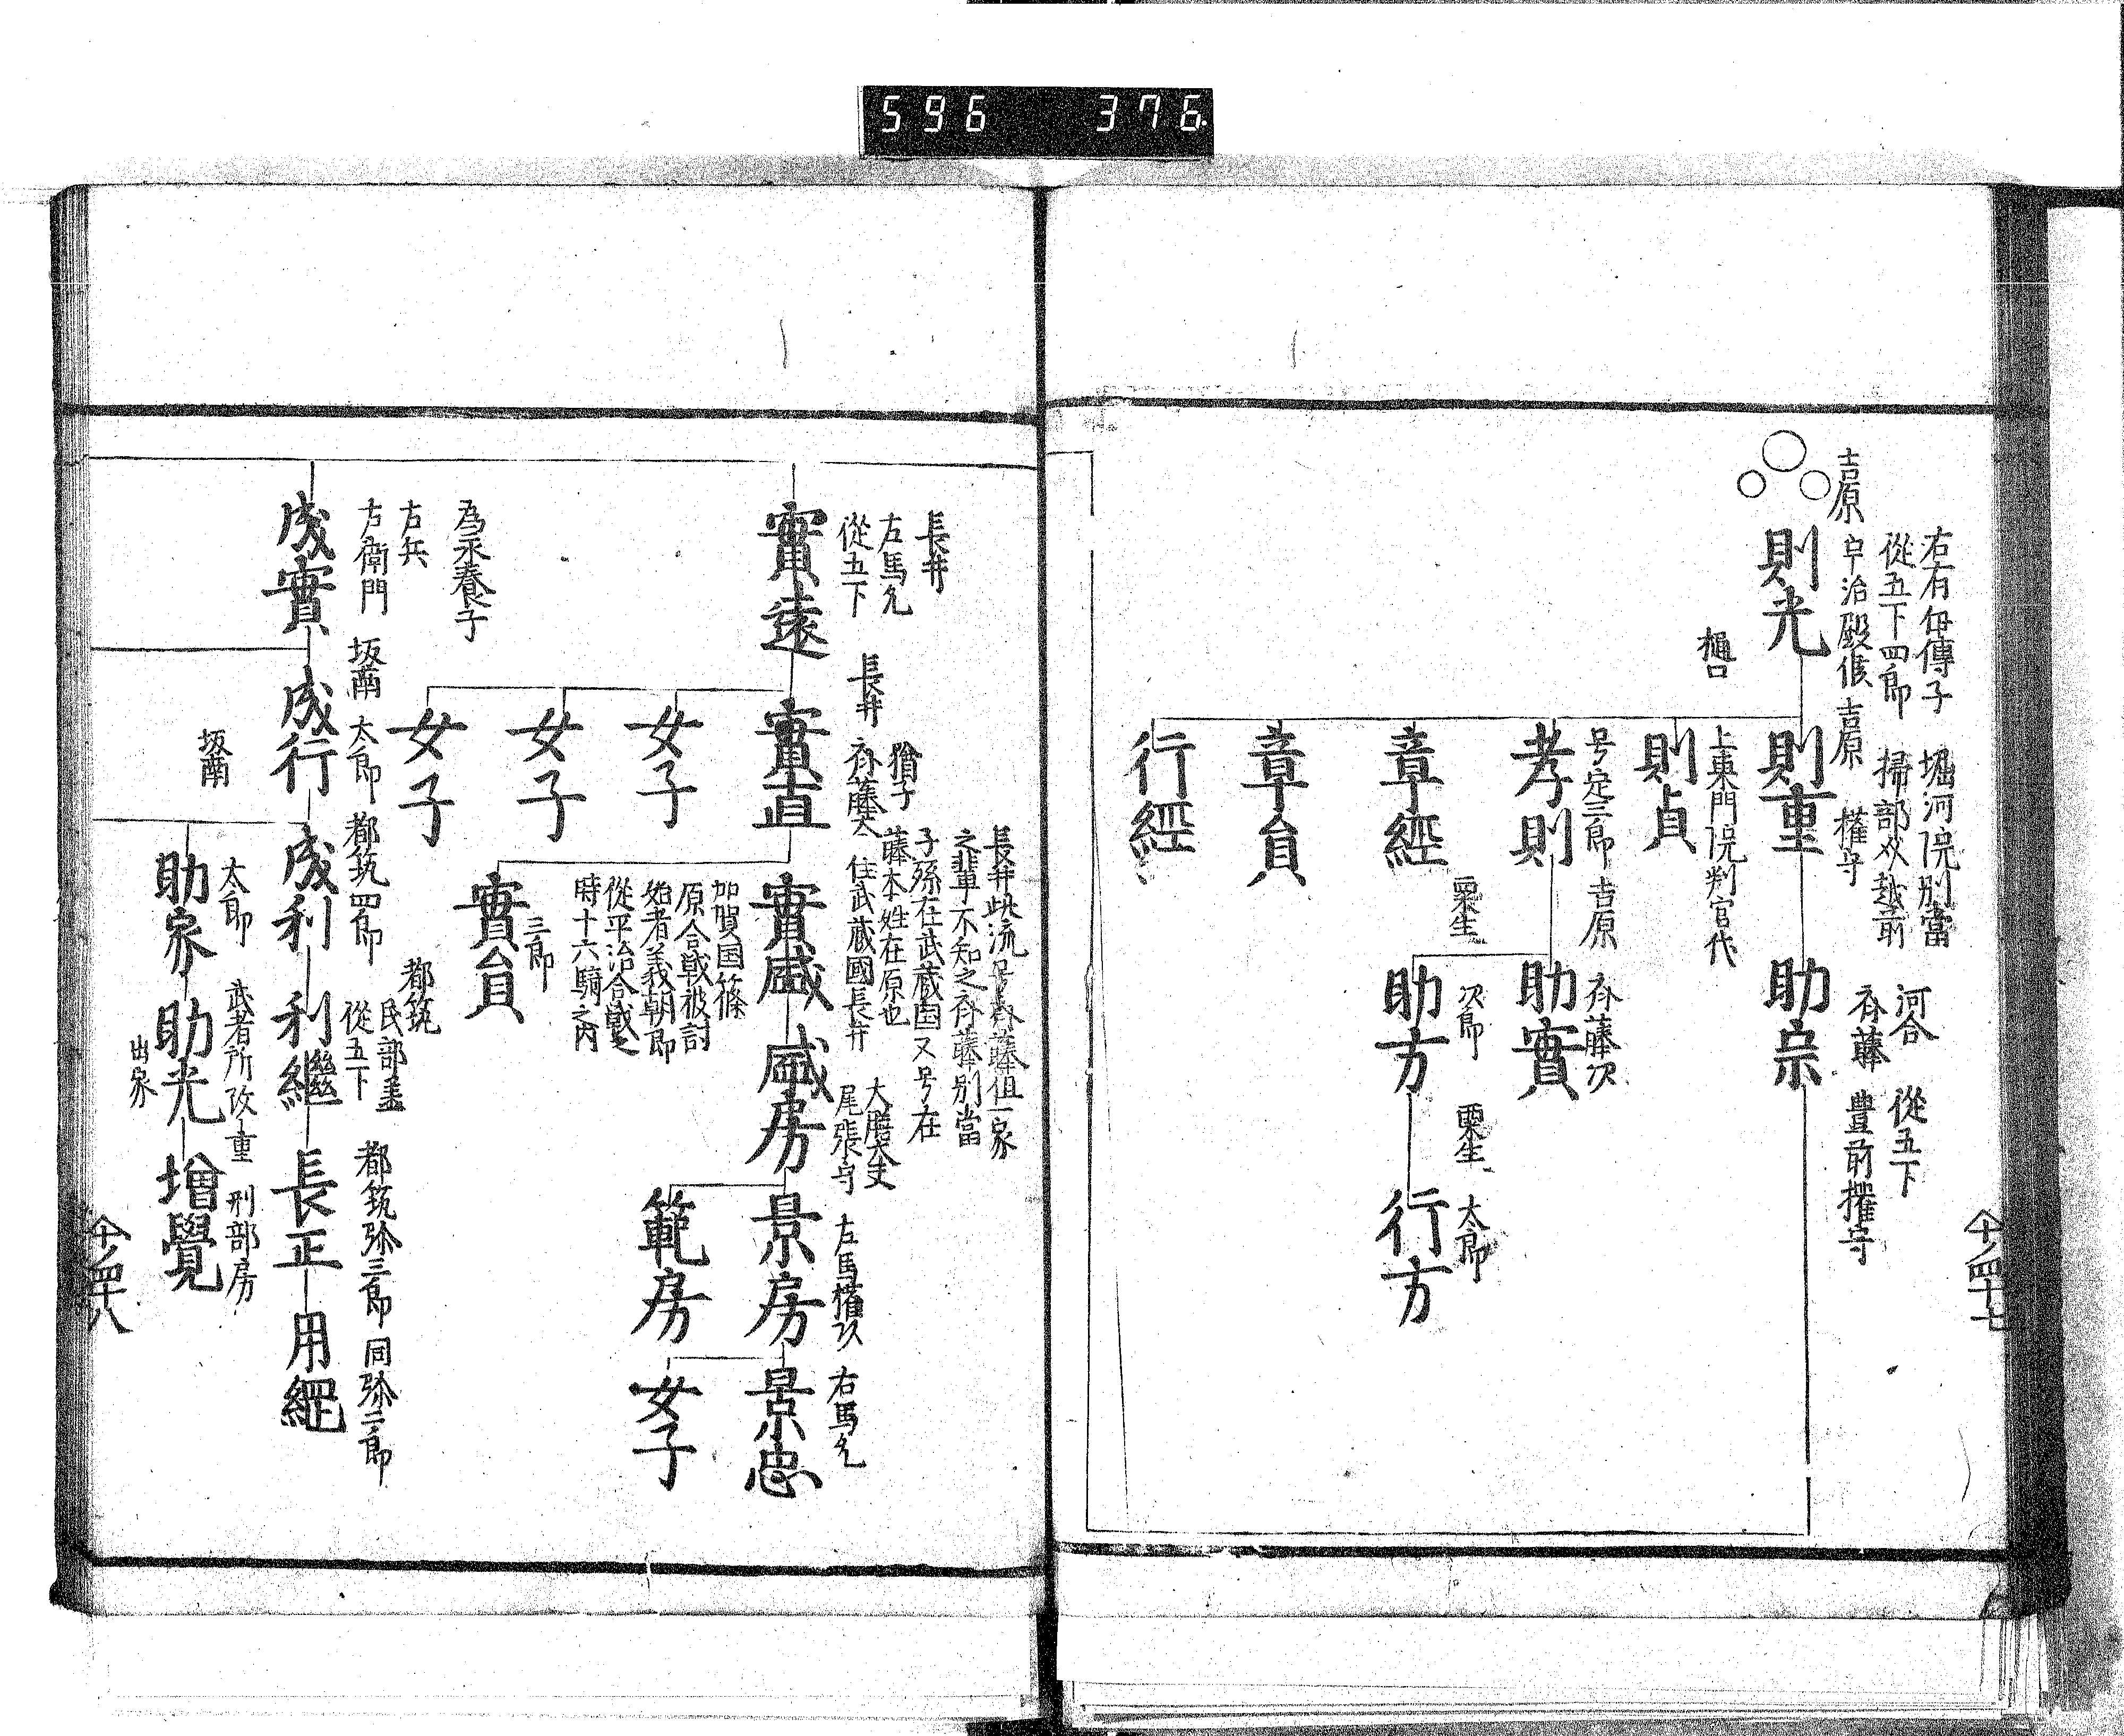 596 376
右有伊傳子
從五下四郎
吉原
則光
堀河院別當
掃部
越前
吉原
權守
則重
河合
斉藤
從五下
豊前權守
助宗
樋口
上東門院判官代
則貞
号定三郎
孝則
吉原
斉藤次
助實
粟生
次郎
助方
粟生
太郎
行方
章經
章貞
行經
長井
左馬允
從五下
實遠
長井
猶子
斉藤太
實直
長井
之輩不知之斉藤別當
子孫在武蔵国又号在
藤本姓在原也
住武蔵國長井
實盛
加賀国篠
原合戦被討
始者義朝郎
從平治合戦之
時十六騎之内
大膳大夫
尾張守
盛房
左馬權
景房
右馬允
景忠
範房
女子
三郎
實貞
女子
女子
女子
為永養子
右兵
右衛門
成實
坂南
太郎
成行
都筑四郎
成利
都筑
民部
從五下
利繼
都筑弥三郎
長正
同弥二郎
用繩
坂南
太郎
助家
武者所改重
助光
出家
刑部房
增覺
四十七
四十八